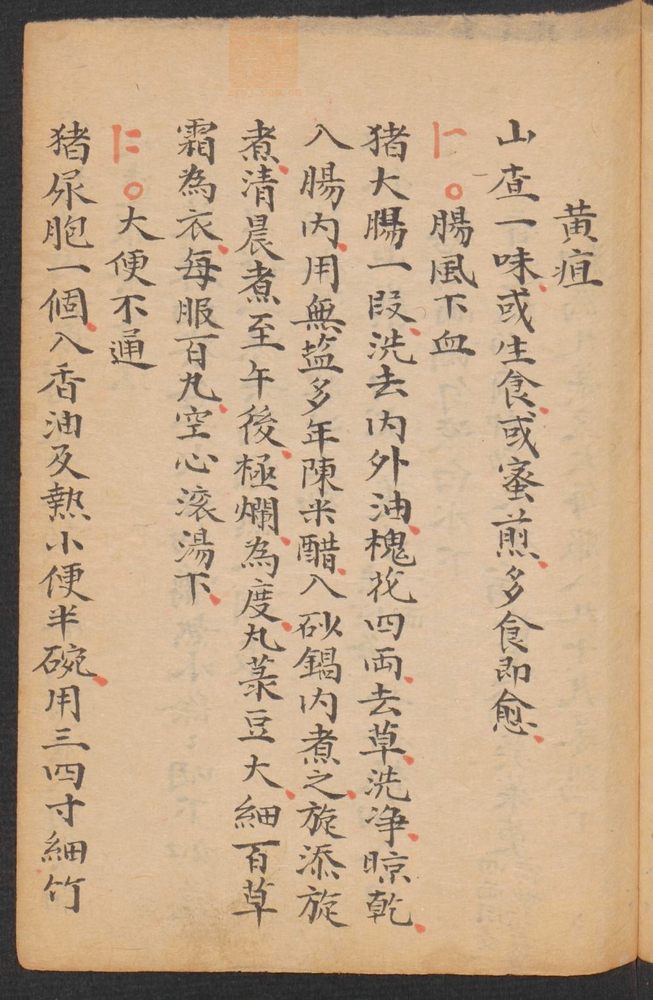 黄疸
山查一味或生食或蜜煎多食即愈
腸風下血
猪大腸一段洗去内外油槐花四両去草洗净晾乾
入腸内用無盐多年陳米醋入砂鍋内煮之旋添旋
煮清晨煮至午後極爛為度丸菉豆大細百草
霜為衣每服百丸空心滚湯下
大便不通
猪尿胞一個入香油及熱小便半碗用三四寸細竹